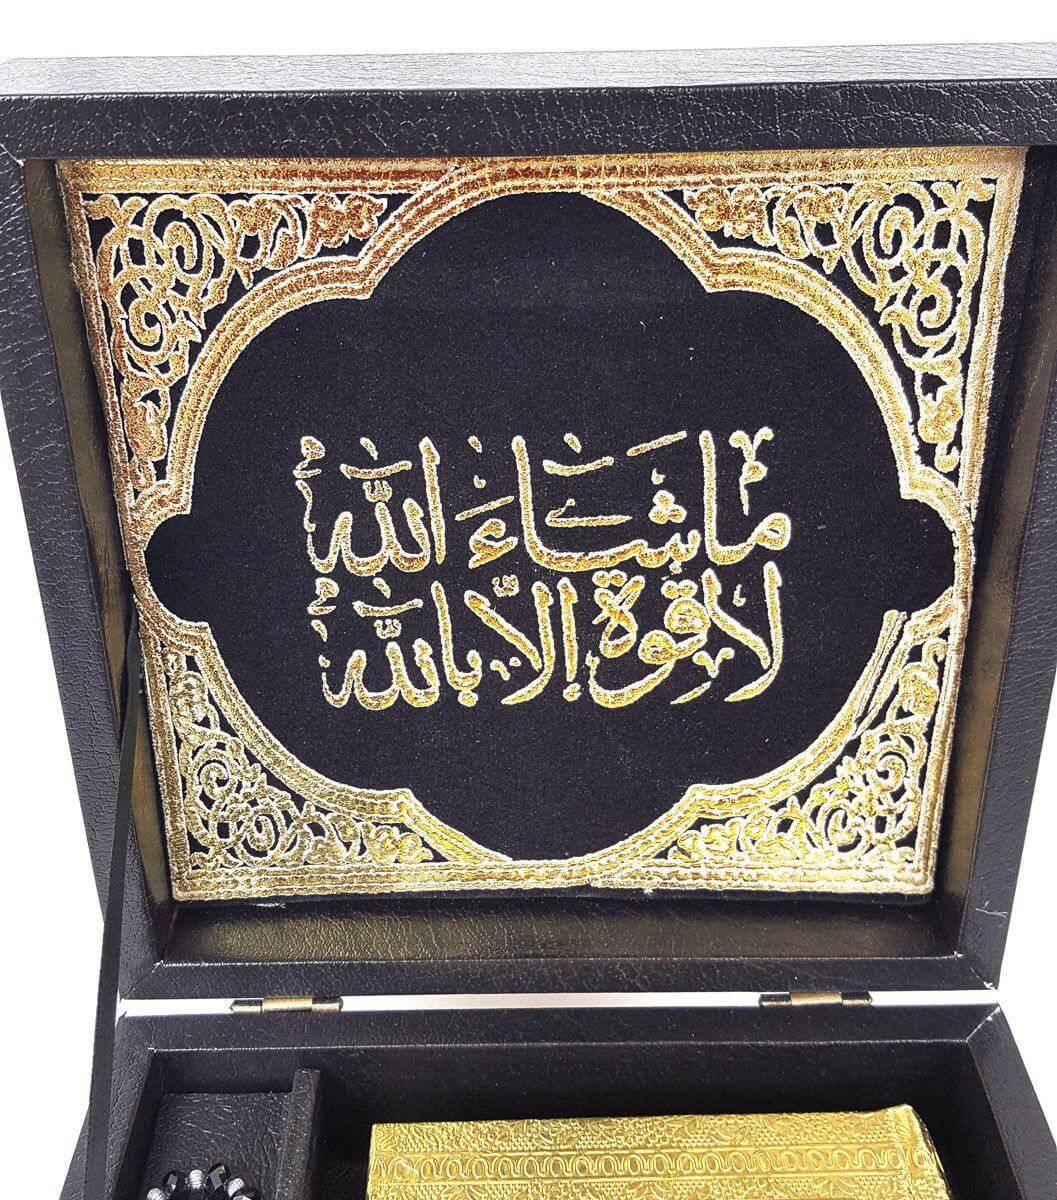 ما شَاءَ اللّٰهُ
لا قوة إلّا باللّٰهِ